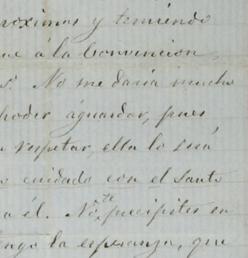 roximos y temiendo
ue á la Convencion,
s. No me daria mucho
poder aguardar, pues
a respetar, ella lo será
o cuidado con el Santo
a él. No te precipites en
engo la esperanza, que